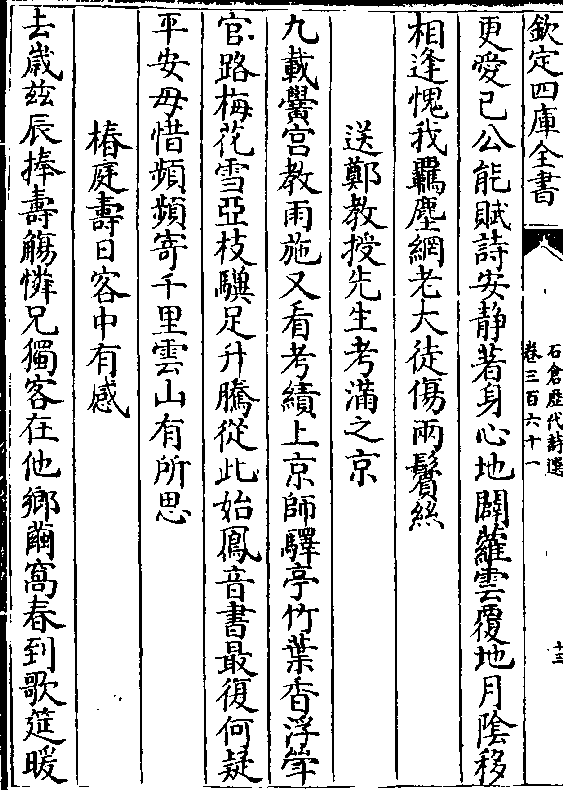 欽定四庫全書
石倉歴代詩選
卷三百六十一
十三
更愛已公能賦詩安静著身心地闢蘿雲覆地月隂移
相逢愧我羈塵網老大徒傷兩鬢絲
送鄭教授先生考滿之京
九載黌宫教雨施又看考績上京師驛亭竹葉香浮斚
官路梅花雪亞枝驥足升騰從此始鳳音書最復何疑
平安毋惜頻頻寄千里雲山有所思
椿庭壽日客中有感
去歲兹辰捧壽觴憐兄獨客在他鄉繭窩春到歌筵暖